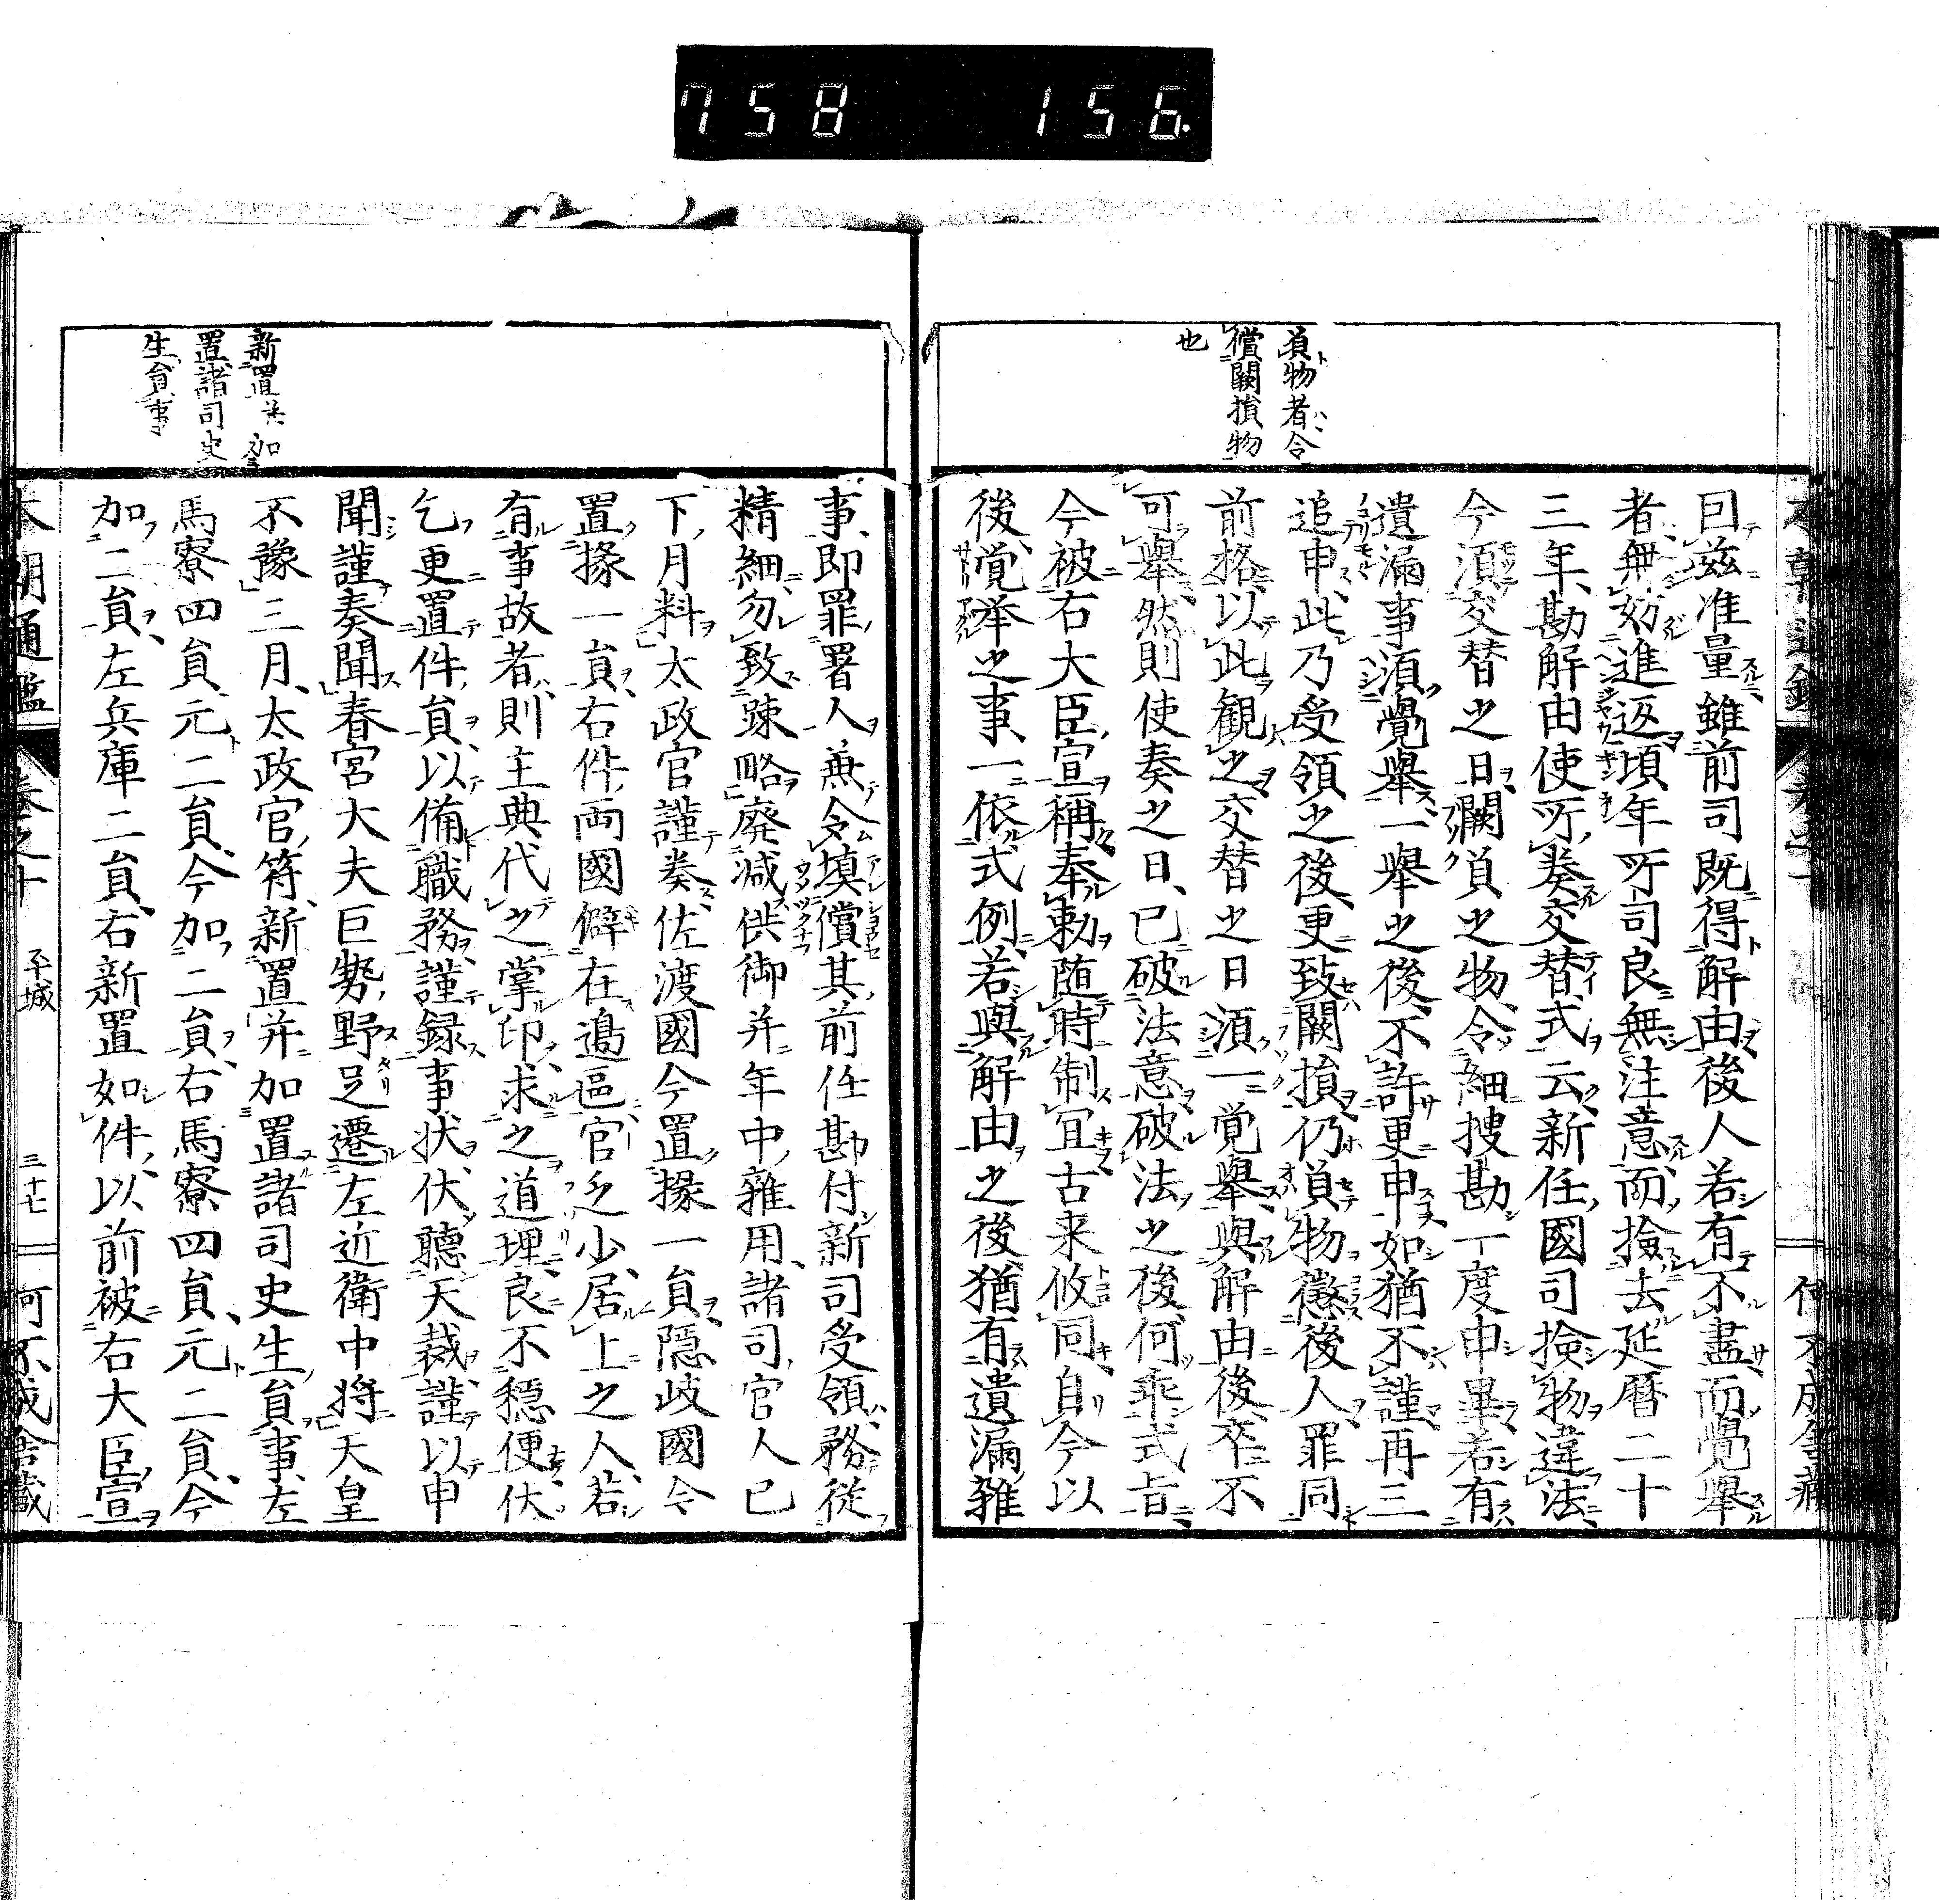 758 156
負物者令
償闕損物
也
回茲准量雖前司既得解由後人若有不盡而覺舉
者無妨進返頃年所司良無注意而撿去延曆二十
三年勘解由使所奏交替式云新任國司撿物違法
今須交替之日闕負之物令細搜勘一度申畢若有
遺漏事須覺舉一舉之後不許更申如猶不謹再三
追申此乃受領之後更致闕損仍負物懲後人罪同
前格以此観之交替之日須一覚舉與解由後卒不
可舉然則使奏之日已破法意破法之後何乖式旨
今被右大臣宣稱奉勅随時制宜古来攸同自今以
後覚举之事一依式例若與解由之後猶有遺漏雜
事即罪署人兼令填償其前任勘付新司受領務從
精細勿致踈略廢減供御并年中雜用諸司官人已
下月料太政官謹奏佐渡國今置掾一員隠岐國今
置掾一員右件両國僻在邊區官乏少居上之人若
有事故者則主典代之掌印求之道理良不穏便伏
乞更置件員以備職務謹録事状伏聽天裁謹以申
聞謹奏聞春宮大夫巨勢野足遷左近衛中将天皇
不豫三月太政官符新置并加置諸司史生員事左
馬寮四員元二員今加二員右馬寮四員元二員今
加二員左兵庫二員右新置如件以前被右大臣宣
新置并加
置諸司史
生員事
本朝通鑑 卷之十 平城 三十七 何不成舎藏